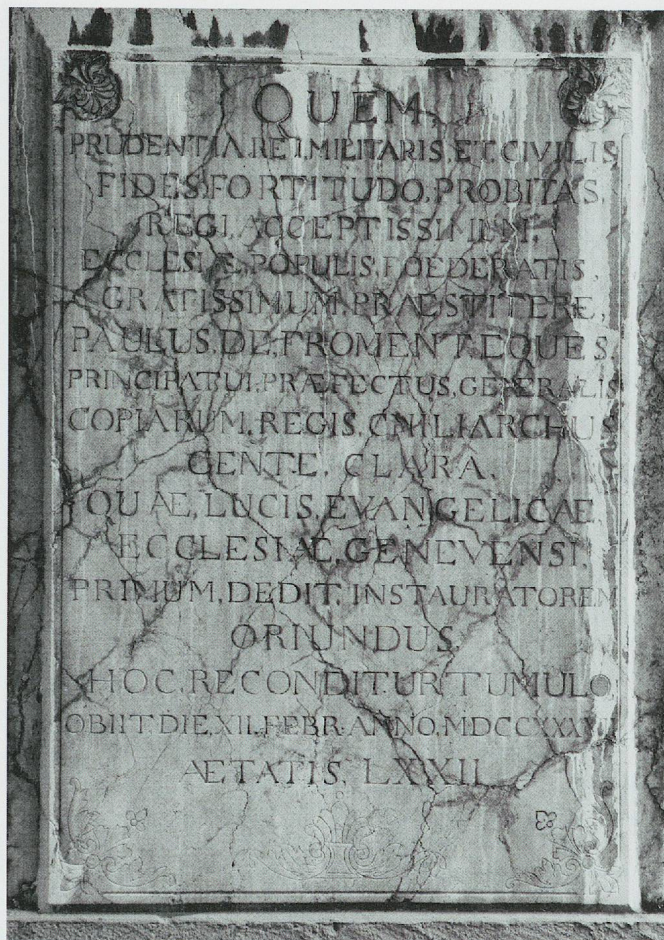 QUEM,
PRUDENTIA.REI.MILITARIS.ET.CIVILIS
FIDES.FORTITUDO.PROBITAS,
REGI.ACCEPTISSIMUM,
ECCLESIÆ.POPULIS.FOEDERATIS,
GRATISSIMUM.PRÆSTITERE,
PAULUS.DE.FROMENT.EQUES.
PRINCIPATUI.PRÆFECTUS.GENERALIS
COPIARUM.REGIS.CHILIARCHUS
GENTE, CLARA,
QUÆ.LUCIS.EVANGELICÆ.
ECCLESIÆ.GENEVENSI.
PRIMUM.DEDIT.INSTAURATOREM
ORIUNDUS.
HOC.RECONDITUR TUMULO
OBIIT.DIE.XII.FEBR.ANNO.
ÆTATIS. LXXII